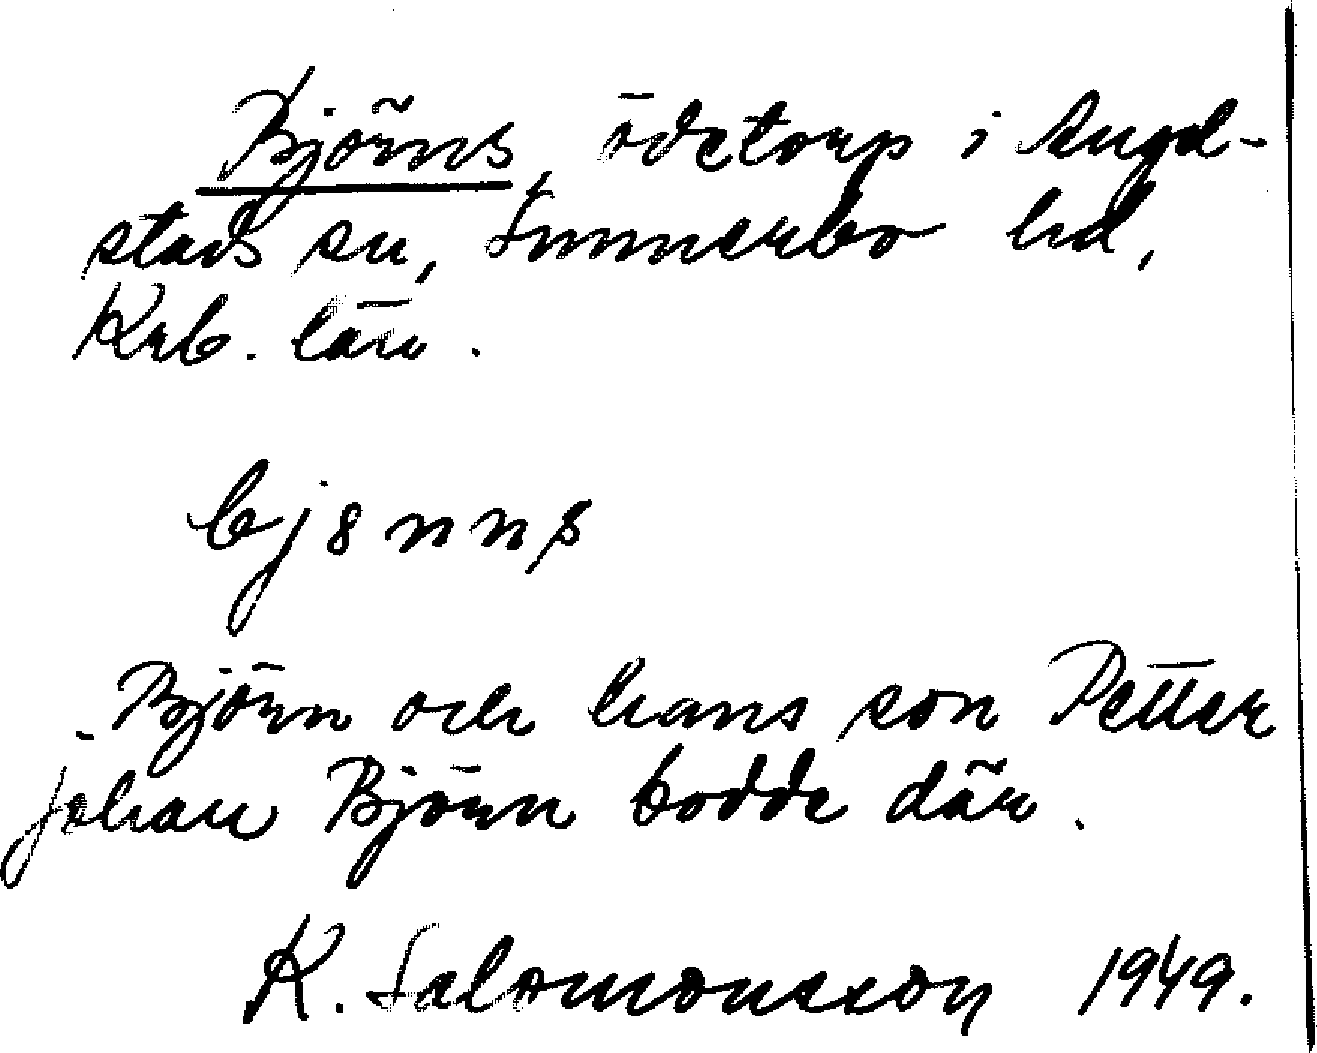 Björns, ödetorp i Angel-
stads sn, Sunnerbo hd,
Krb. län.
bj8nns
Björn och hans son Petter
Johan Björn bodde där.
K. Salomonsson 1949.